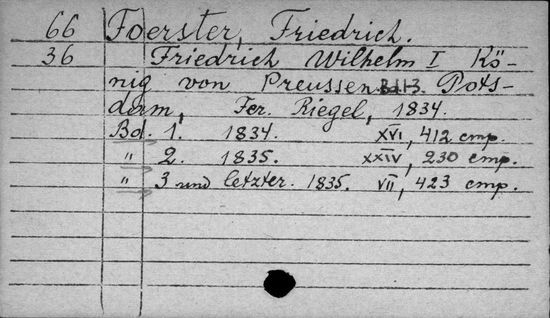 66 Foerster, Friedrich.
36 Friedrich Wilhelm I Kö-
nig von Preussen. B. 1-3. Pots-
dam, Fer. Riegel, 1834.
Bd. 1. 1834. XVI, 412 cmp.
" 2. 1835. XXIV, 230 cmp.
" 3 und letzter. 1835. VII, 423 cmp.